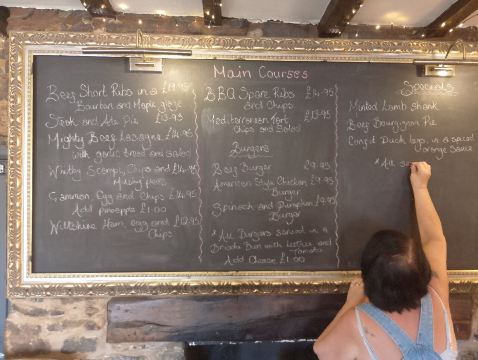 Main Courses
Beef Short Ribs in a £19.95
Bourbon and Maple glaze
Steak and Ale Pie £13.95
Mighty Beef Lasagne £14.95
with garlic bread and salad
Whitby Scampi, Chips and £14.95
Mushy peas
Gammon, Egg and Chips £14.95
Add pineapple £1.00
Wiltshire Ham, egg and £12.95
Chips
BBQ Spare Ribs £14.95
and Chips
Mediterranean Tart £13.95
Chips and Salad
Burgers
Beef Burger £9.95
American Style Chicken £9.95
Burger
Spinach and Pumpkin £9.95
Burger
* All Burgers served in a
Brioche Bun with Lettuce and
Tomato
Add Cheese £1.00
Specials
Minted Lamb Shank
Beef Bourguignon Pie
Confit Duck legs in a
Orange Sauce
* All se